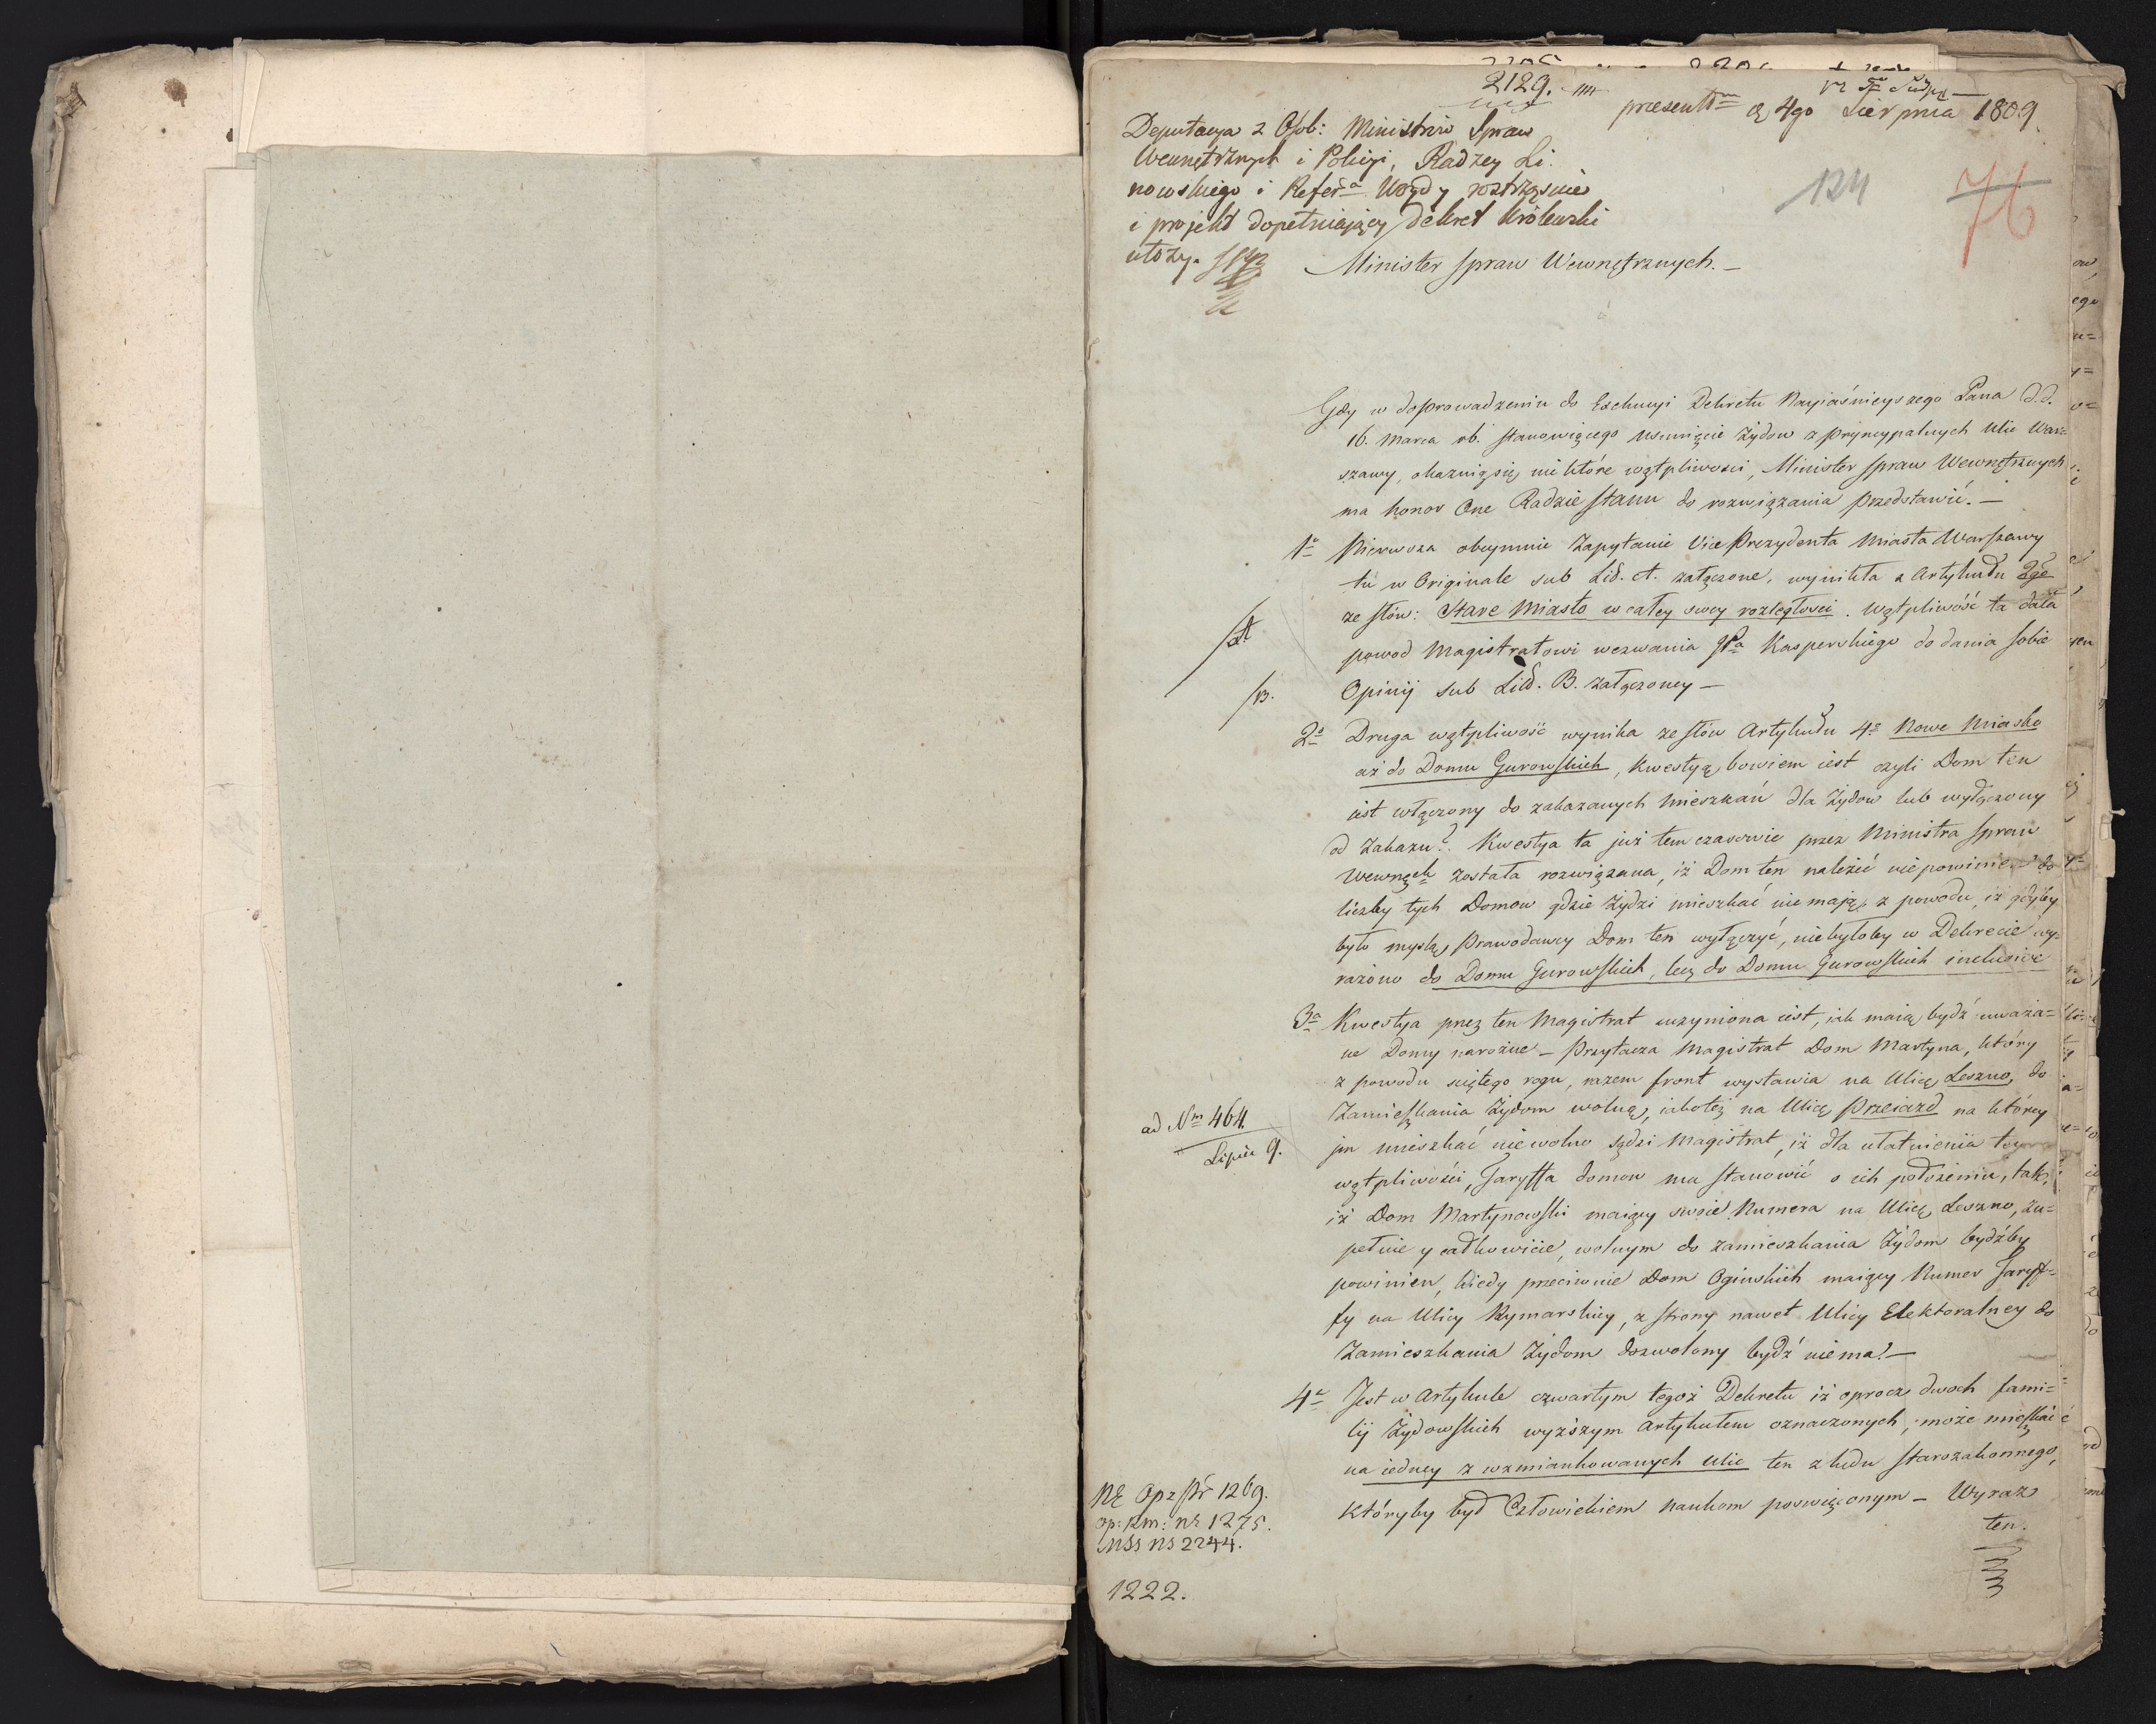 2129.
præsentm 4go Sierpnia 1809
Deputacya z Osób: Ministrów Spraw
Wewnętrznych i Policyi, Radzcy Li
nowskiego i Refera Woydy roztrząśnie
i projekt dopełniający Dekret Królewski
ułoży.
124
76
Minister Spraw Wewnętrznych. —
Gdy w doprowadzeniu do Exekucyi Dekretu Nayiaśnieyszego Pana d.d.
16. Marca rb. stanowiącego usunięcie Żydow z pryncypalnych Ulic War=
szawy, okazuią się niektóre wątpliwości, Minister Spraw Wewnętrznych
ma honor One Radzie Stanu do rozwiązania przedstawić. —
1o Pierwsza obeymuie Zapytanie Vice Prezydenta Miasta Warszawy
tu w Originale sub Lit. A. załączone, wynikła z Artykułu 2go
ze słów: Stare Miasto w całey swey rozległości. Wątpliwość ta dała
powod Magistratowi wezwania JPa Kasperskiego do dania sobie
Opinij sub Litt. B. załączoney —
/A.
/B.
2o Druga wątpliwość wynika ze słów Artykułu 4o Nowe Miasto
aż do Domu Gurowskich, Kwestyą bowiem iest czyli Dom ten
iest włączony do zakazanych mieszkań dla Żydow lub wyłączony
od Zakazu? Kwestya ta już tem czasowie przez Ministra Spraw
Wewnęch została rozwiązana, iż Dom ten należeć nie powinien do
liczby tych Domow gdzie Żydzi mieszkać nie mają, z powodu, iż gdyby
było myslą Prawodawcy Dom ten wyłączyć, nie byłoby w Dekrecie wy=
rażono do Domu Gurowskich, lecz do Domu Gurowskich inclusive
3a Kwestya przez ten Magistrat uczyniona iest, iak maią bydź uważa=
ne Domy narożne — Przytacza Magistrat Dom Martyna, który
z powodu sciętego rogu, razem front wystawia na Ulicę Leszno, do
Zamieszkania Żydom wolną, iakoteż na Ulicę Przeiazd na którey
im mieszkać nie wolno sądzi Magistrat, iż dla ułatwienia tey
wątpliwości, Taryffa domow ma stanowić o ich położeniu, tak,
iż Dom Martynowski maiący swoie Numera na Ulicę Leszno, zu=
pełnie y całkowicie, wolnym do zamieszkania Żydom bydźby
powinien, kiedy przeciwnie Dom Oginskich maiący Numer Taryf=
fy na Ulicy Rymarskiey, z strony nawet Ulicy Elektoralney do
Zamieszkania Żydom dozwolony bydź nie ma? —
ad Nm 464.
Lipca 9.
4a Jest w Artykule czwartym tegoż Dekretu iż oprocz dwoch fami=
lij Żydowskich wyższym Artykułem oznaczonych, może mieszkać
na iedney z wzmiankowanych Ulic ten z ludu starozakonnego,
któryby był Człowiekiem naukom poswięconym — Wyraz
ten.
1269.
1275.
2244.
1222.